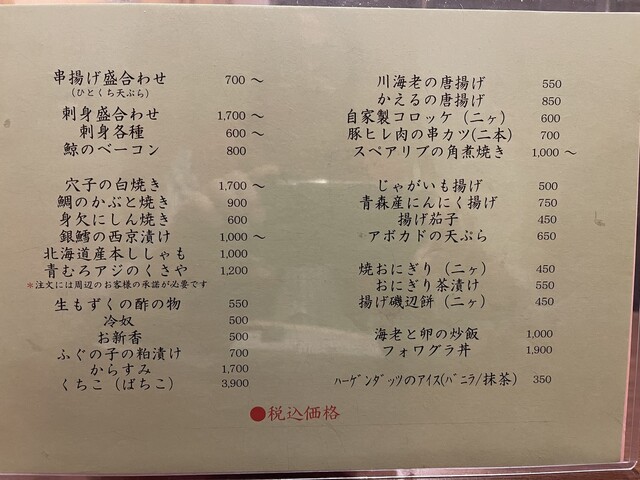 串揚げ盛合わせ 700 ～
(ひとくち天ぷら)
刺身盛合わせ 1,700 ～
刺身各種 600 ～
鯨のベーコン 800
穴子の白焼き 1,700 ～
鯛のかぶと焼き 900
身欠にしん焼き 600
銀鱈の西京漬け 1,000 ～
北海道産本ししゃも 1,000
青むろアジのくさや 1,200
*注文には周辺のお客様の承諾が必要です
生もずくの酢の物 550
冷奴 500
お新香 500
ふぐの子の粕漬け 700
からすみ 1,700
くちこ（ばちこ） 3,900
川海老の唐揚げ 550
かえるの唐揚げ 850
自家製コロッケ（二ヶ） 600
豚ヒレ肉の串カツ(二本) 700
スペアリブの角煮焼き 1,000 ～
じゃがいも揚げ 500
青森産にんにく揚げ 750
揚げ茄子 450
アボカドの天ぷら 650
焼おにぎり（二ヶ） 450
おにぎり茶漬け 550
揚げ磯辺餅（二ヶ） 450
海老と卵の炒飯 1,000
フォワグラ丼 1,900
ﾊｰｹﾞﾝﾀﾞｯﾂのアイス(ﾊﾞﾆﾗ/抹茶) 350
●税込価格